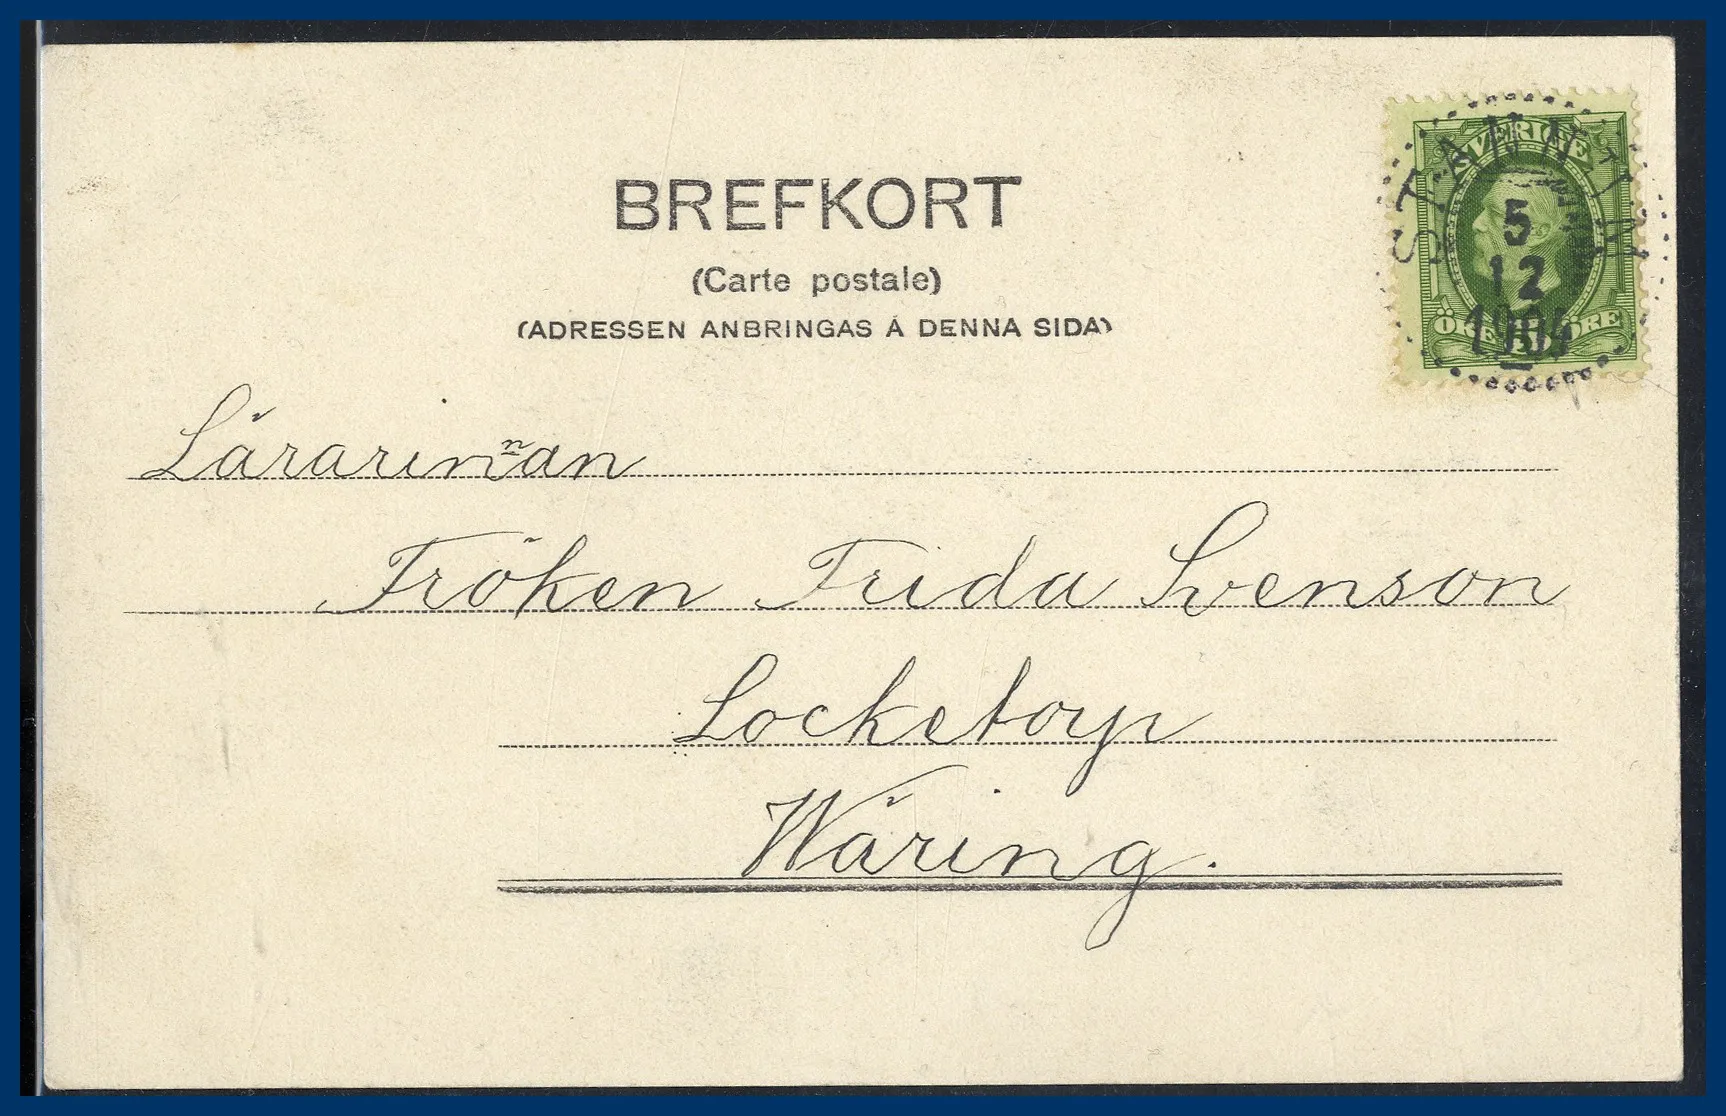 BREFKORT
(Carte postale)
(ADRESSEN ANBRINGAS Å DENNA SIDA)
SVERIGE
STANNUM
5
12
1904
Lärarinnan
Fröken Frida Svenson
Locketorp
Wäring.